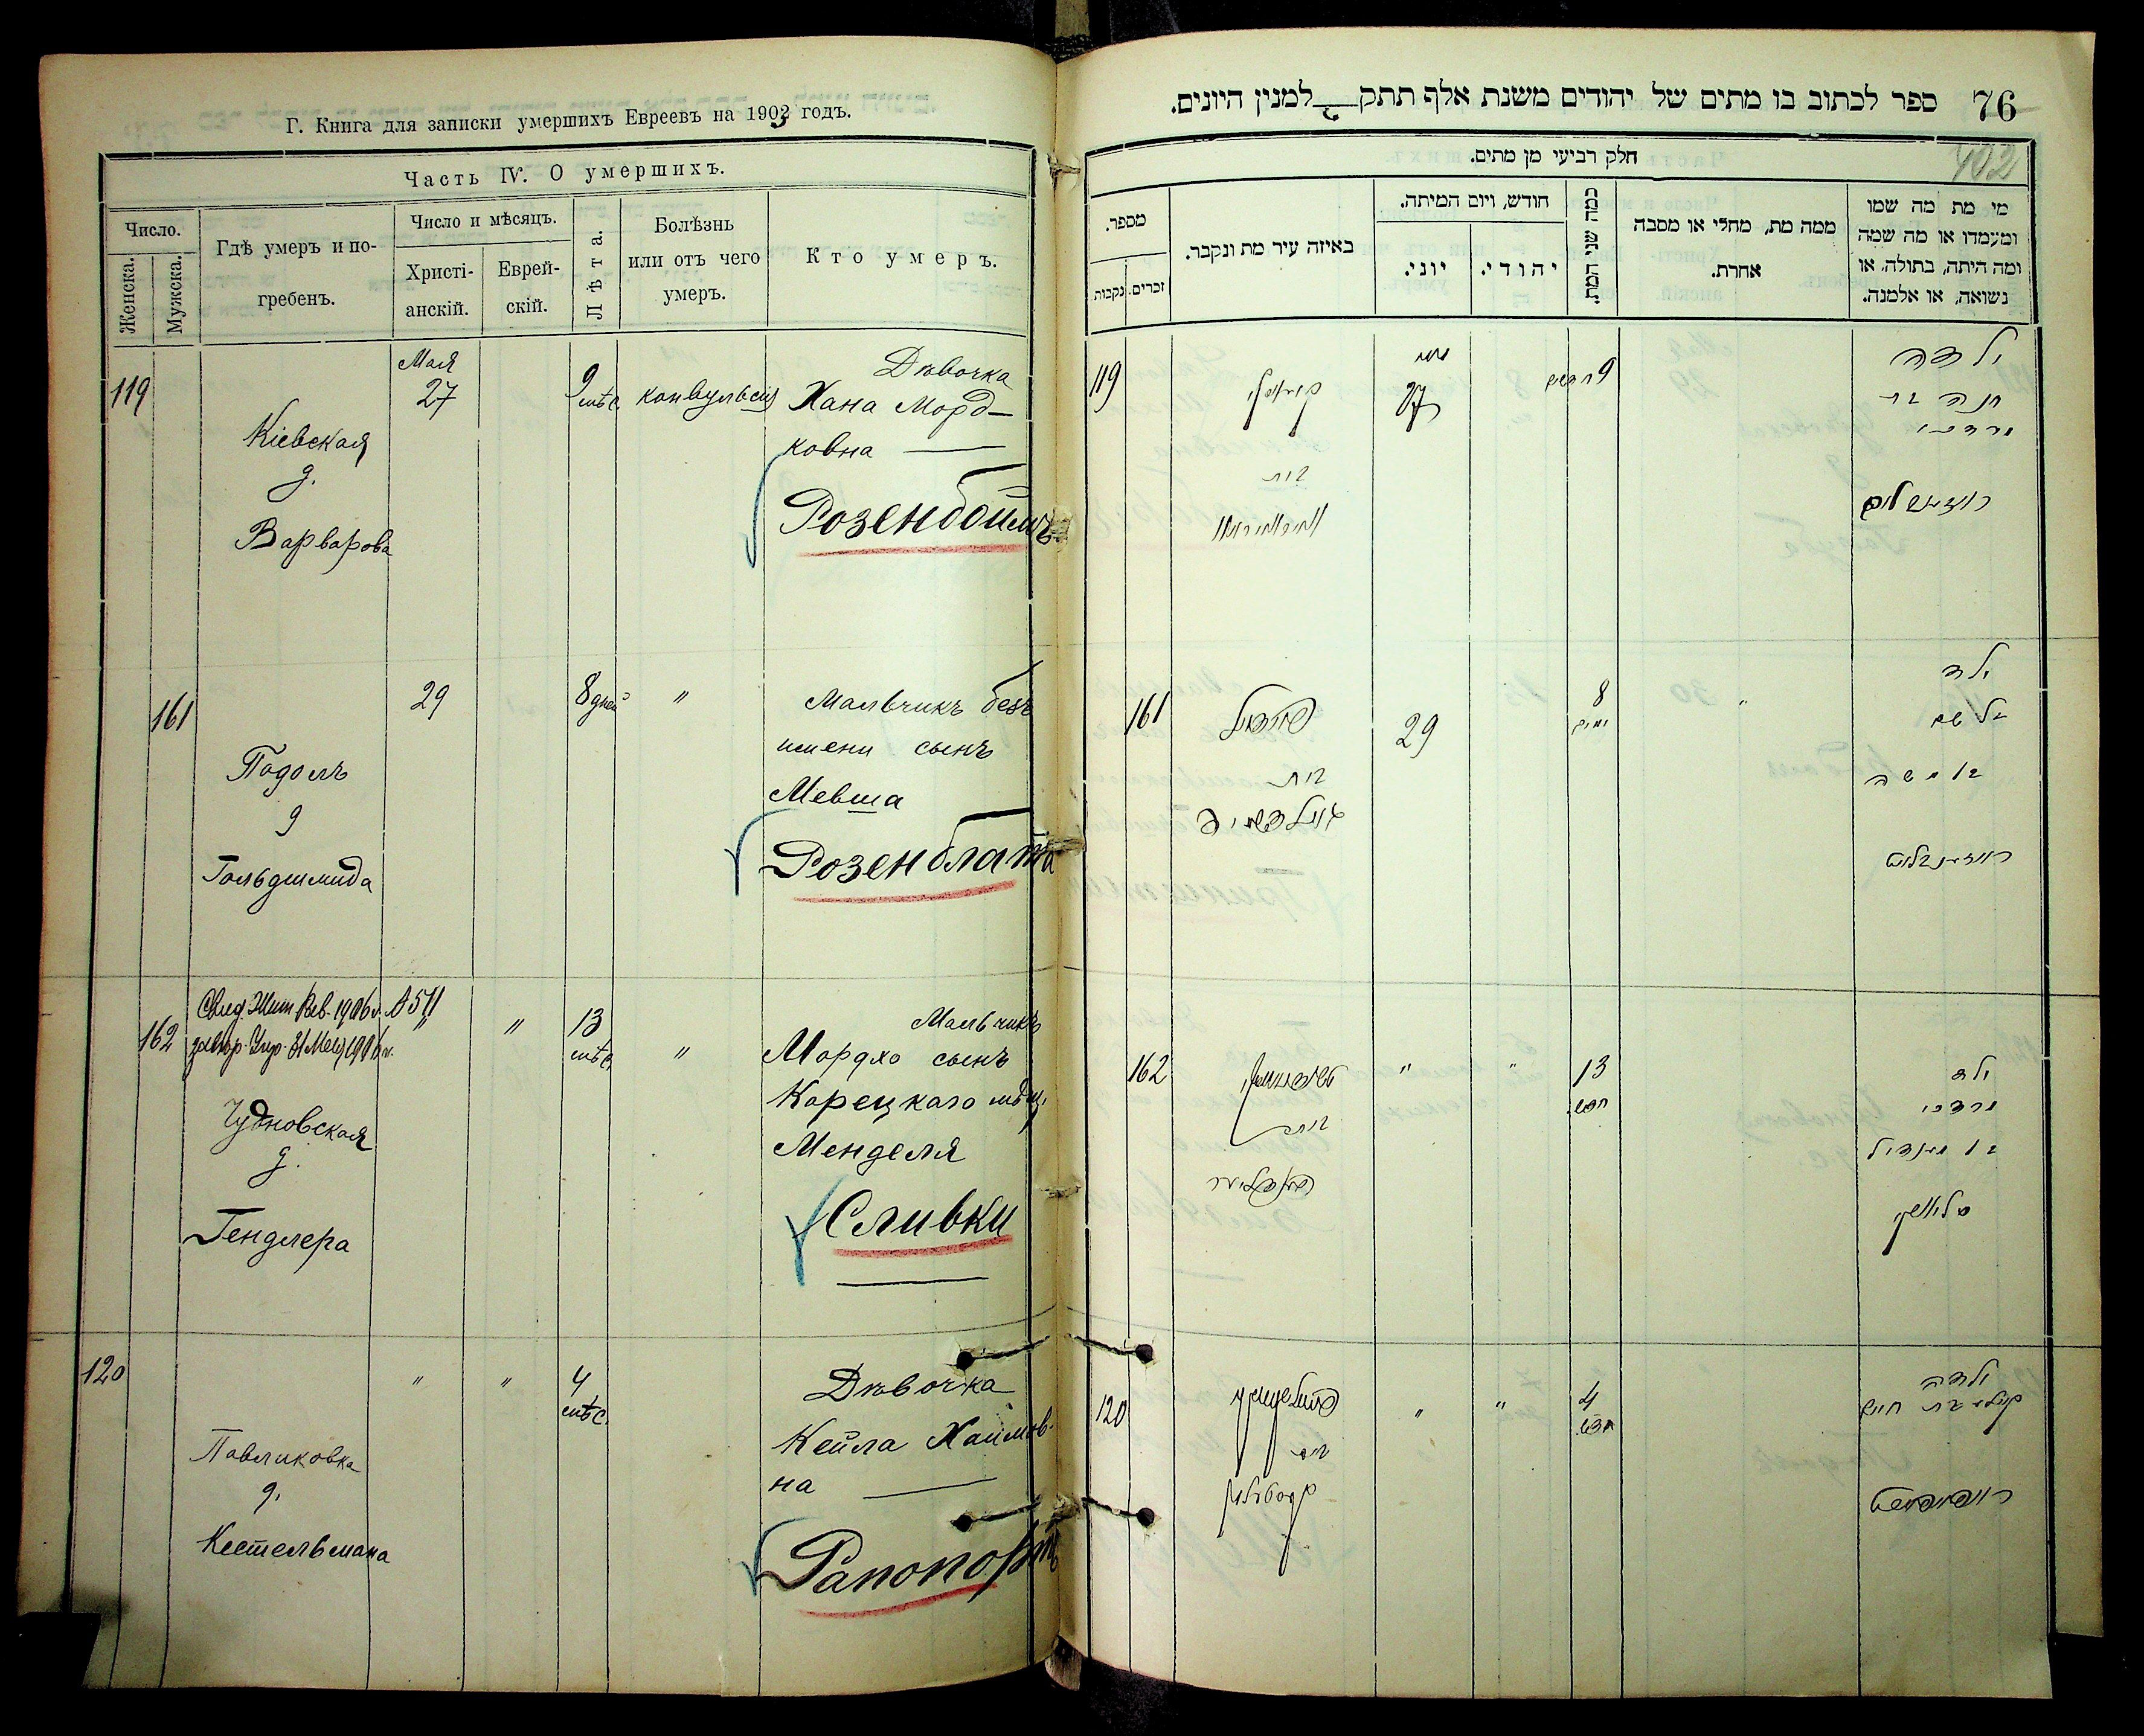 Г. Книга для записки умершихъ Евреевъ на 1903 годъ.
Часть IV. О умершихъ.
Число.
Женска.
Мужска.
Гдѣ умеръ и по-
гребенъ.
Число и мѣсяцъ.
Христі-
анскій.
Еврей-
скій.
Лѣта.
Болѣзнь
или отъ чего
умеръ.
Кто умеръ.
119
Кіевская
д.
Варварова
Мая
27
9
мѣс.
конвульсія
Дѣвочка
Хана Морд-
ковна
Розенбоймъ
161
Подолъ
д
Гольдшмида
29
8 дней
"
Мальчикъ безъ
имени сынъ
Мевша
Розенблата
162
Чудновская
д.
Гендлера
"
"
13
мѣс.
"
Мальчикъ
Мордхо сынъ
Корецкаго мѣщ.
Менделя
Сливки
120
Павликовка
д.
Кестельмана
"
"
4
мѣс.
Дѣвочка
Кейла Хаимов-
на
Рапопортъ
76
ספר לכתוב בו מתים של יהודים משנת אלף תתק למנין היונים.
402
חלק רביעי מן מתים.
מספר.
נקבות
זכרים.
באיזה עיר מת ונקבר.
חודש, ויום המיתה.
יוני.
יהודי.
כמה שני המת.
ממה מת, מחלי או מסבה
אחרת.
מי מת מה שמו
ומעמדו או מה שמה
ומה היתה, בתולה, או
נשואה, או אלמנה.
119
בית
27
9
ילדה
חנה בת
מרדכי
161
בית
29
8
ימים
ילד
בלי שם
בן משה
ראזינבלאט
162
בית
"
"
13
חדש.
ילד
מרדכי
בן מענדיל
120
בית
"
"
4
חדש.
ילדה
קיילא בת חיים
ראפאפארט